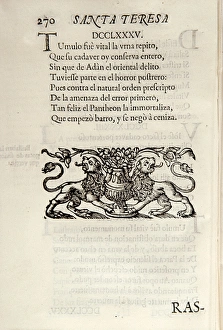 270 SANTA TERESA
DCCLXXXV.
TUmulo fuè vital la vrna repito,
Que su cadaver oy conserva entero,
Sin que de Adàn el oriental delito
Tuviesse parte en el horror postrero:
Pues contra el natural orden prescripto
De la amenaza del error primero,
Tan feliz el Pantheon la immortaliza,
Que empezò barro, y se negò à ceniza.
RAS-